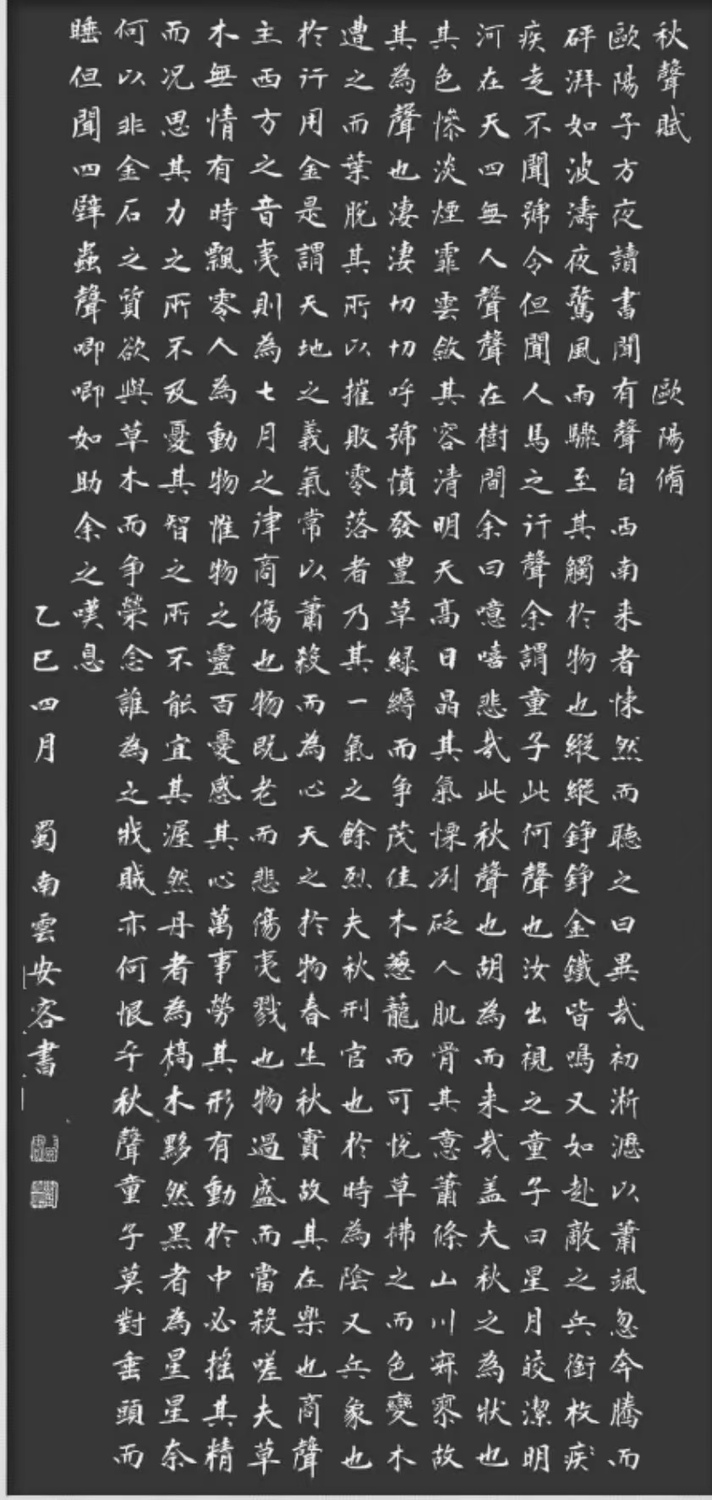 秋聲賦 歐陽脩
歐陽子方夜讀書聞有聲自西南来者悚然而聽之曰異哉初淅瀝以蕭颯忽奔騰而
砰湃如波濤夜驚風雨驟至其觸於物也縱縱錚錚金鐵皆鳴又如赴敵之兵銜枚疾
疾走不聞號令但聞人馬之行聲余謂童子此何聲也汝出視之童子曰星月皎潔明
河在天四無人聲聲在樹間余曰噫嘻悲哉此秋聲也胡為而来哉盖夫秋之為狀也
其色慘淡煙霏雲斂其容清明天高日晶其氣慄冽砭人肌骨其意蕭條山川寂寥故
其為聲也淒淒切切呼號憤發豊草緑縟而争茂佳木葱蘢而可悦草拂之而色變木
遭之而葉脱其所以摧敗零落者乃其一氣之餘烈夫秋刑官也於時為陰又兵象也
於行用金是謂天地之義氣常以蕭殺而為心天之於物春生秋實故其在樂也商聲
主西方之音夷則為七月之律商傷也物既老而悲傷夷戮也物過盛而當殺嗟夫草
木無情有時飄零人為動物惟物之靈百憂感其心萬事勞其形有動於中必摇其精
而况思其力之所不及憂其智之所不能宜其渥然丹者為槁木黟然黑者為星星奈
何以非金石之質欲與草木而争榮念誰為之戕賊亦何恨乎秋聲童子莫對垂頭而
睡但聞四壁蟲聲唧唧如助余之嘆息
乙巳四月 蜀南雲安容書